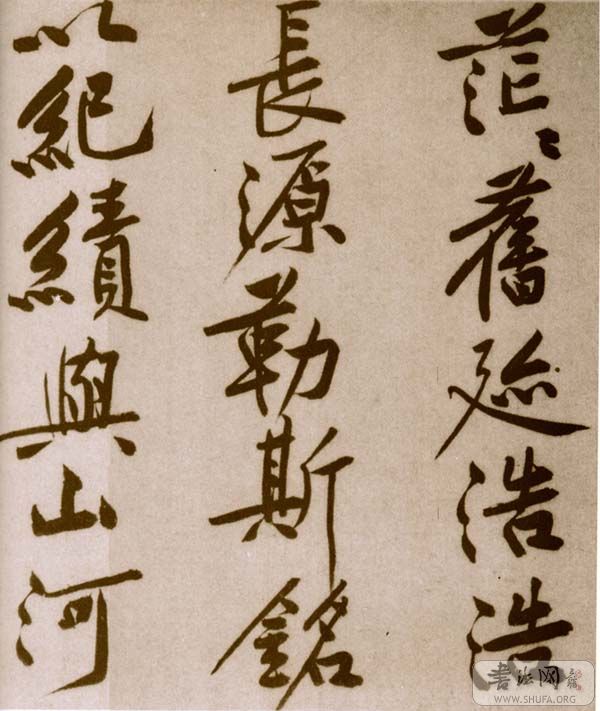 茫〻舊迹浩浩
長源勒斯銘
以紀績與山河
書法网
WWW.SHUFA.ORG